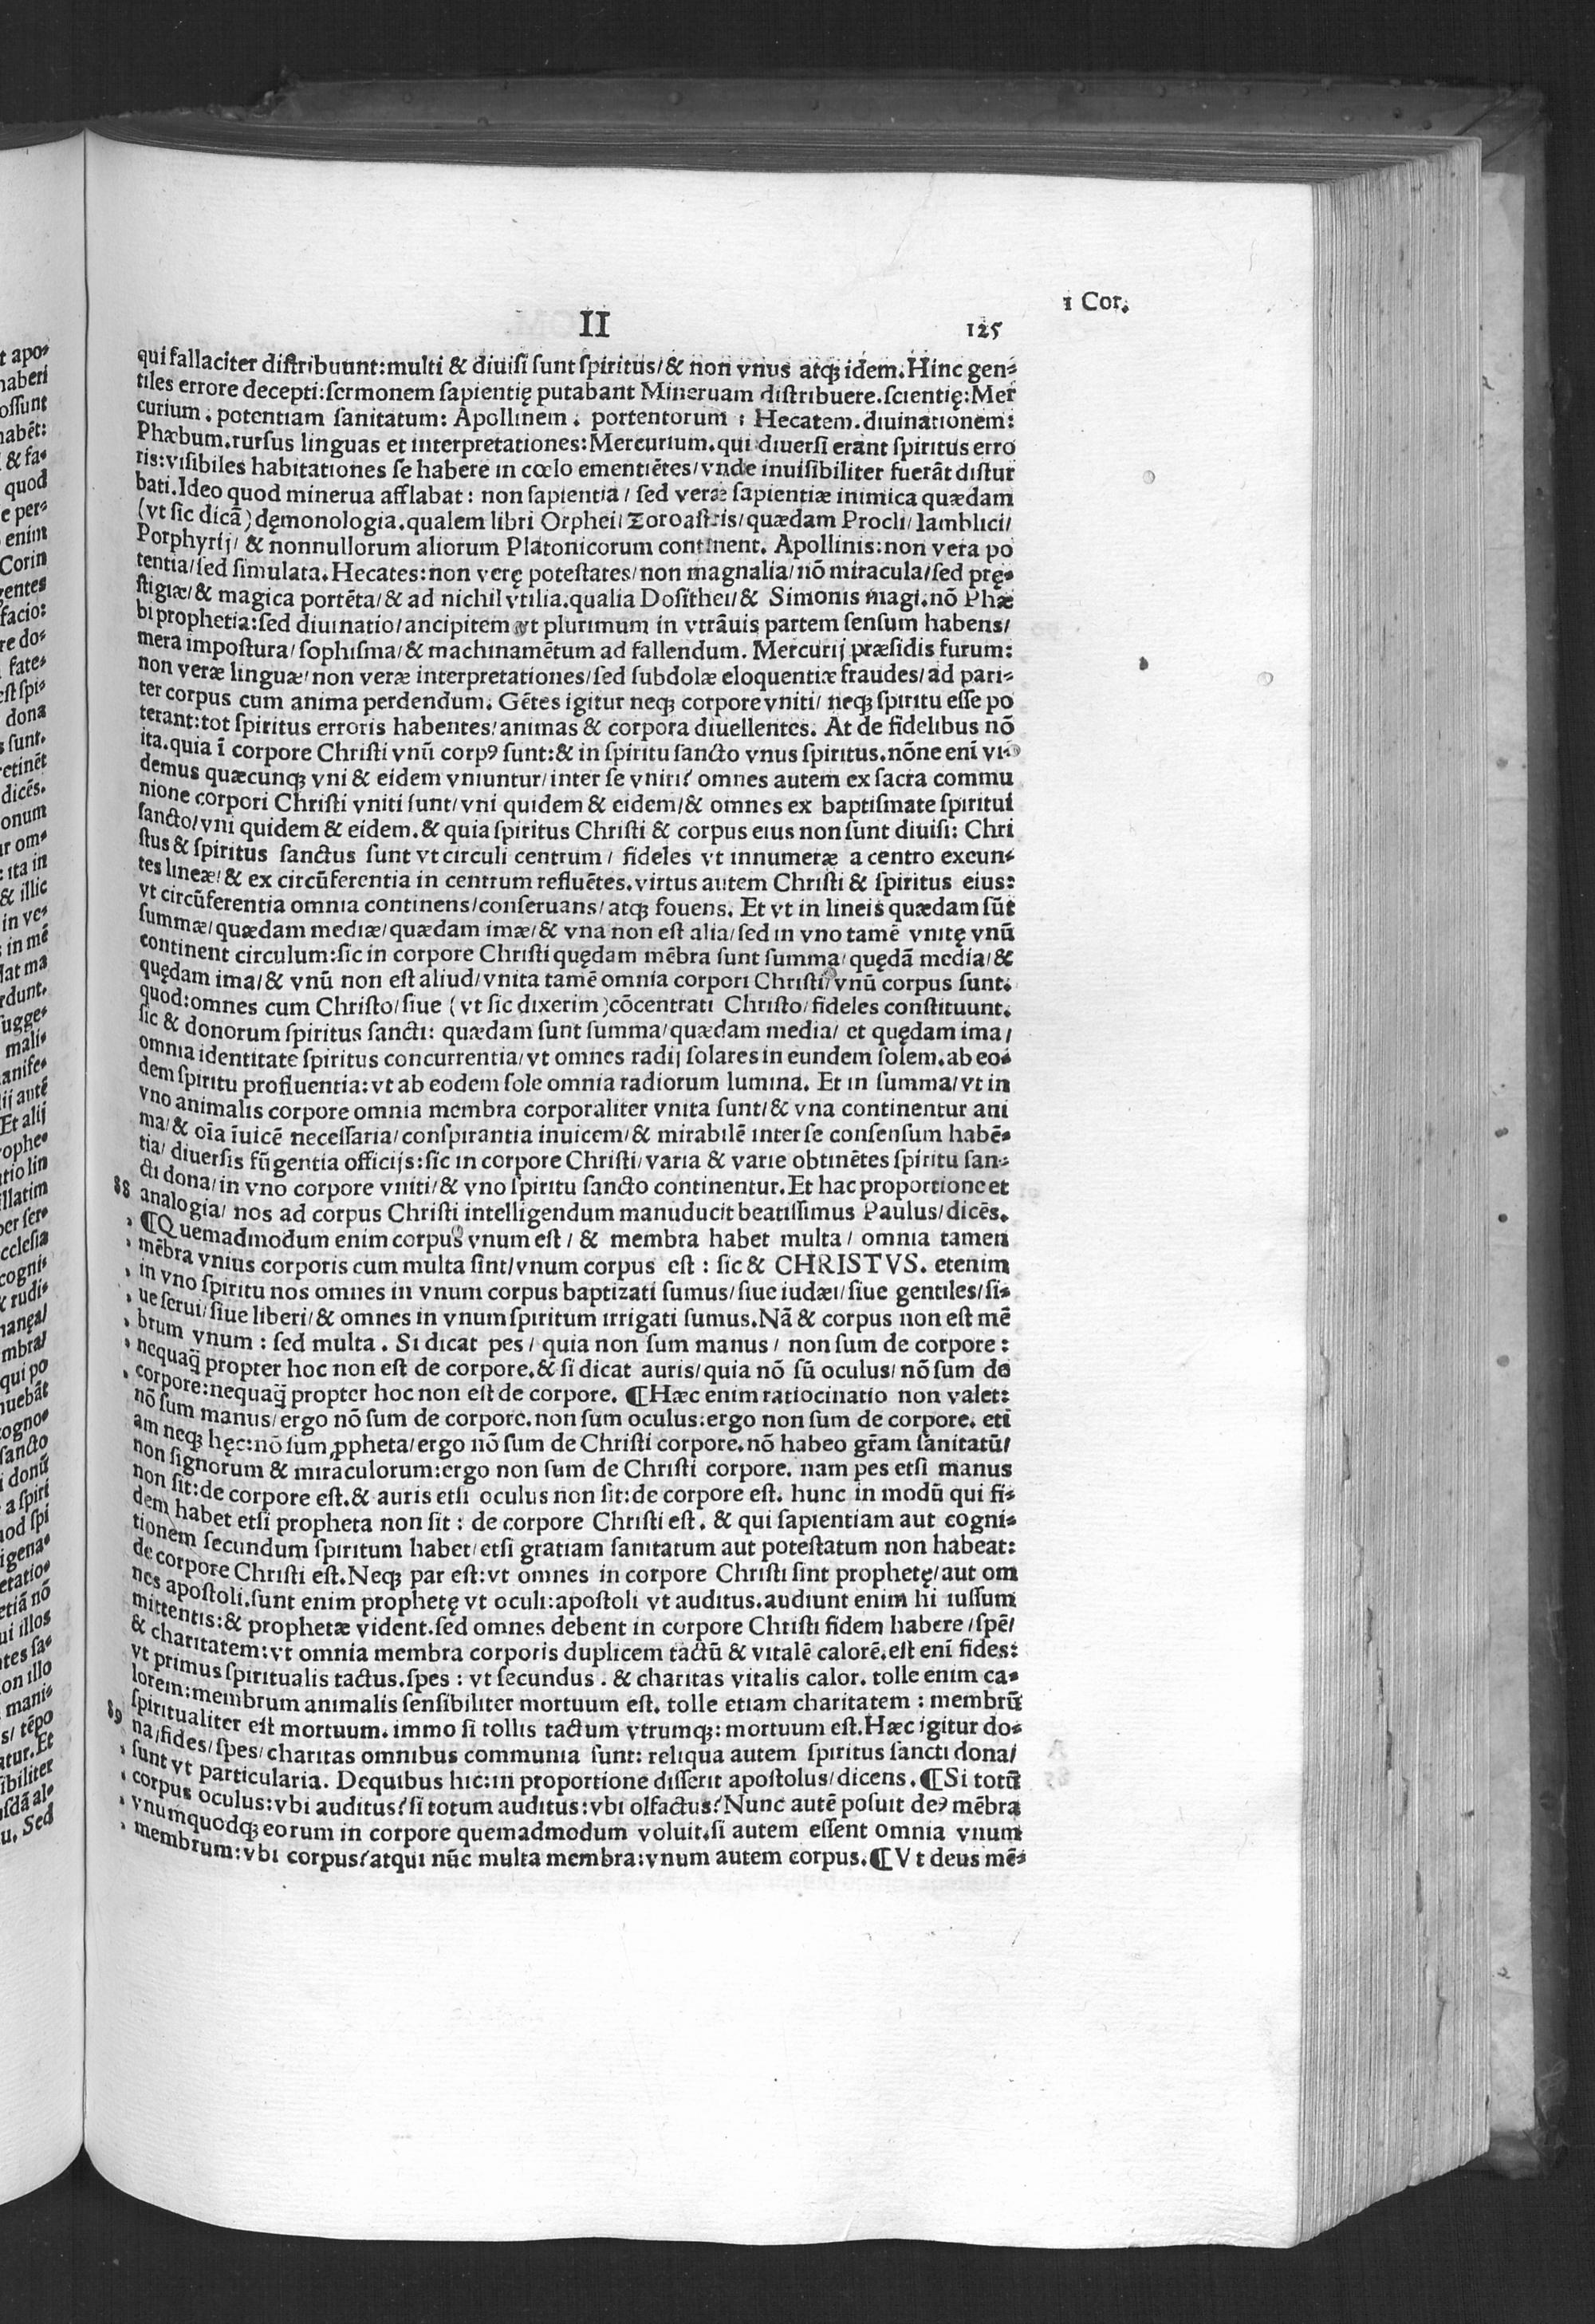 1 Cor.
II
125
qui fallaciter diſtribuunt:multi & diuiſi ſunt ſpiritus/& non vnus atqꝫ idem.Hinc gen⸗
tiles errore decepti:ſermonem ſapientię putabant Mineruam diſtribuere.ſcientię:Mer
curium. potentiam ſanitatum: Apollinem. portentorum: Hecatem.diuinationem:
Phæbum.rurſus linguas et interpretationes:Mercurium.qui diuerſi erant ſpiritus erro
ris:viſibiles habitationes ſe habere in cœlo ementiẽtes/vnde inuiſibiliter fuerãt diſtur
bati.Ideo quod minerua afflabat: non ſapientia/ ſed veræ ſapientiæ inimica quædam
(vt ſic dicã) dęmonologia.qualem libri Orphei/Zoroaſtris/quædam Procli/Iamblici/
Porphyrij/ & nonnullorum aliorum Platonicorum continent. Apollinis:non vera po
tentia/ſed ſimulata.Hecates:non verę poteſtates/non magnalia/nõ miracula/ſed prę⸗
ſtigiæ/& magica portẽta/& ad nichil vtilia.qualia Doſithei/& Simonis magi.nõ Phæ
bi prophetia:ſed diuinatio/ancipitem vt plurimum in vtrãuis partem ſenſum habens/
mera impoſtura/ſophiſma/& machinamẽtum ad fallendum. Mercurij præſidis furum:
non veræ linguæ/non veræ interpretationes/ſed ſubdolæ eloquentiæ fraudes/ad pari⸗
ter corpus cum anima perdendum. Gẽtes igitur neqꝫ corpore vniti/ neqꝫ ſpiritu eſſe po
terant:tot ſpiritus erroris habentes/animas & corpora diuellentes. At de fidelibus nõ
ita.quia ĩ corpore Chriſti vnũ corpꝰ ſunt:& in ſpiritu ſancto vnus ſpiritus.nõne enĩ vi⸗
demus quæcunqꝫ vni & eidem vniuntur/inter ſe vniri? omnes autem ex ſacra commu
nione corpori Chriſti vniti ſunt/vni quidem & eidem/& omnes ex baptiſmate ſpiritui
ſancto/vni quidem & eidem.& quia ſpiritus Chriſti & corpus eius non ſunt diuiſi: Chri
ſtus & ſpiritus ſanctus ſunt vt circuli centrum/ fideles vt innumeræ a centro exeun⸗
tes lineæ/& ex circũferentia in centrum refluẽtes.virtus autem Chriſti & ſpiritus eius:
vt circũferentia omnia continens/conſeruans/atqꝫ fouens. Et vt in lineis quædam ſũt
ſummæ/quædam mediæ/quædam imæ/& vna non eſt alia/ſed in vno tamẽ vnitę vnũ
continent circulum:ſic in corpore Chriſti quędam mẽbra ſunt ſumma/quędã media/&
quędam ima/& vnũ non eſt aliud/vnita tamẽ omnia corpori Chriſti/vnũ corpus ſunt.
quod:omnes cum Chriſto/ſiue (vt ſic dixerim)cõcentrati Chriſto/fideles conſtituunt.
ſic & donorum ſpiritus ſancti: quædam ſunt ſumma/quædam media/ et quędam ima/
omnia identitate ſpiritus concurrentia/vt omnes radij ſolares in eundem ſolem.ab eo⸗
dem ſpiritu profluentia:vt ab eodem ſole omnia radiorum lumina. Et in ſumma/vt in
vno animalis corpore omnia membra corporaliter vnita ſunt/& vna continentur ani
ma/& oĩa ĩuicẽ neceſſaria/conſpirantia inuicem/& mirabilẽ inter ſe conſenſum habẽ⸗
tia/ diuerſis fũgentia officijs:ſic in corpore Chriſti/varia & varie obtinẽtes ſpiritu ſan⸗
cti dona/in vno corpore vniti/& vno ſpiritu ſancto continentur.Et hac proportione et
88 analogia/ nos ad corpus Chriſti intelligendum manuducit beatiſſimus Paulus/dicẽs.
, ¶Quemadmodum enim corpus vnum eſt/ & membra habet multa/ omnia tamen
, mẽbra vnius corporis cum multa ſint/vnum corpus eſt: ſic & CHRISTVS. etenim
, in vno ſpiritu nos omnes in vnum corpus baptizati ſumus/ſiue iudæi/ſiue gentiles/ſi⸗
, ue ſerui/ſiue liberi/& omnes in vnum ſpiritum irrigati ſumus.Nã & corpus non eſt mẽ
, brum vnum: ſed multa. Si dicat pes/ quia non ſum manus/ non ſum de corpore:
, nequaq̃ propter hoc non eſt de corpore.& ſi dicat auris/quia nõ ſũ oculus/nõ ſum de
, corpore:nequaq̃ propter hoc non eſt de corpore. ¶Hæc enim ratiocinatio non valet:
nõ ſum manus/ergo nõ ſum de corpore.non ſum oculus:ergo non ſum de corpore. etĩ
am neqꝫ hęc:nõ ſum ꝓpheta/ergo nõ ſum de Chriſti corpore.nõ habeo gr̃am ſanitatũ/
non ſignorum & miraculorum:ergo non ſum de Chriſti corpore. nam pes etſi manus
non ſit:de corpore eſt.& auris etſi oculus non ſit:de corpore eſt. hunc in modũ qui fi⸗
dem habet etſi propheta non ſit: de corpore Chriſti eſt. & qui ſapientiam aut cogni⸗
tionem ſecundum ſpiritum habet/etſi gratiam ſanitatum aut poteſtatum non habeat:
de corpore Chriſti eſt.Neqꝫ par eſt:vt omnes in corpore Chriſti ſint prophetę/aut om
nes apoſtoli.ſunt enim prophetę vt oculi:apoſtoli vt auditus.audiunt enim hi iuſſum
mittentis:& prophetæ vident.ſed omnes debent in corpore Chriſti fidem habere/ſpẽ/
& charitatem:vt omnia membra corporis duplicem tactũ & vitalẽ calorẽ.eſt enĩ fides:
vt primus ſpiritualis tactus.ſpes: vt ſecundus. & charitas vitalis calor. tolle enim ca⸗
lorem:membrum animalis ſenſibiliter mortuum eſt. tolle etiam charitatem: membrũ
ſpiritualiter eſt mortuum. immo ſi tollis tactum vtrumqꝫ: mortuum eſt.Hæc igitur do⸗
89 na/fides/ſpes/charitas omnibus communia ſunt: reliqua autem ſpiritus ſancti dona/
, ſunt vt particularia. Dequibus hic:in proportione diſſerit apoſtolus/dicens. ¶Si totũ
, corpus oculus:vbi auditus?ſi totum auditus:vbi olfactus?Nunc autẽ poſuit deꝰ mẽbra
, vnumquodqꝫ eorum in corpore quemadmodum voluit.ſi autem eſſent omnia vnum
, membrum:vbi corpus?atqui nũc multa membra:vnum autem corpus.¶Vt deus mẽ⸗